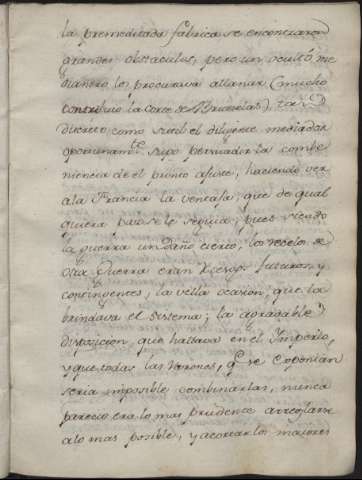 la premeditada fabrica se encontraron
grandes obstaculos, pero un oculto me
dianero lo procurava allanar (mucho
contribuio la Corte de Bruselas), tan
discreto como sutil el diligente mediador
oportunam.te supo persuadir la combe
niencia de el primo afore, haciendo ver
a la Francia la ventaja, que de qual
quiera paz se le seguia; pues siendo
la guerra un Daño cierto, los recelos de
otra Guerra eran Riesgos futuros, y
contingentes, la vella ocasion, que la
brindava el sistema; la agradable
disposicion, que hallava en el Imperio,
y que todas las Razones, q.e se oponian
seria imposible combinarlas, nunca
parecio era lo mas prudente arreglarse
a lo mas posible, y acortar los maiores